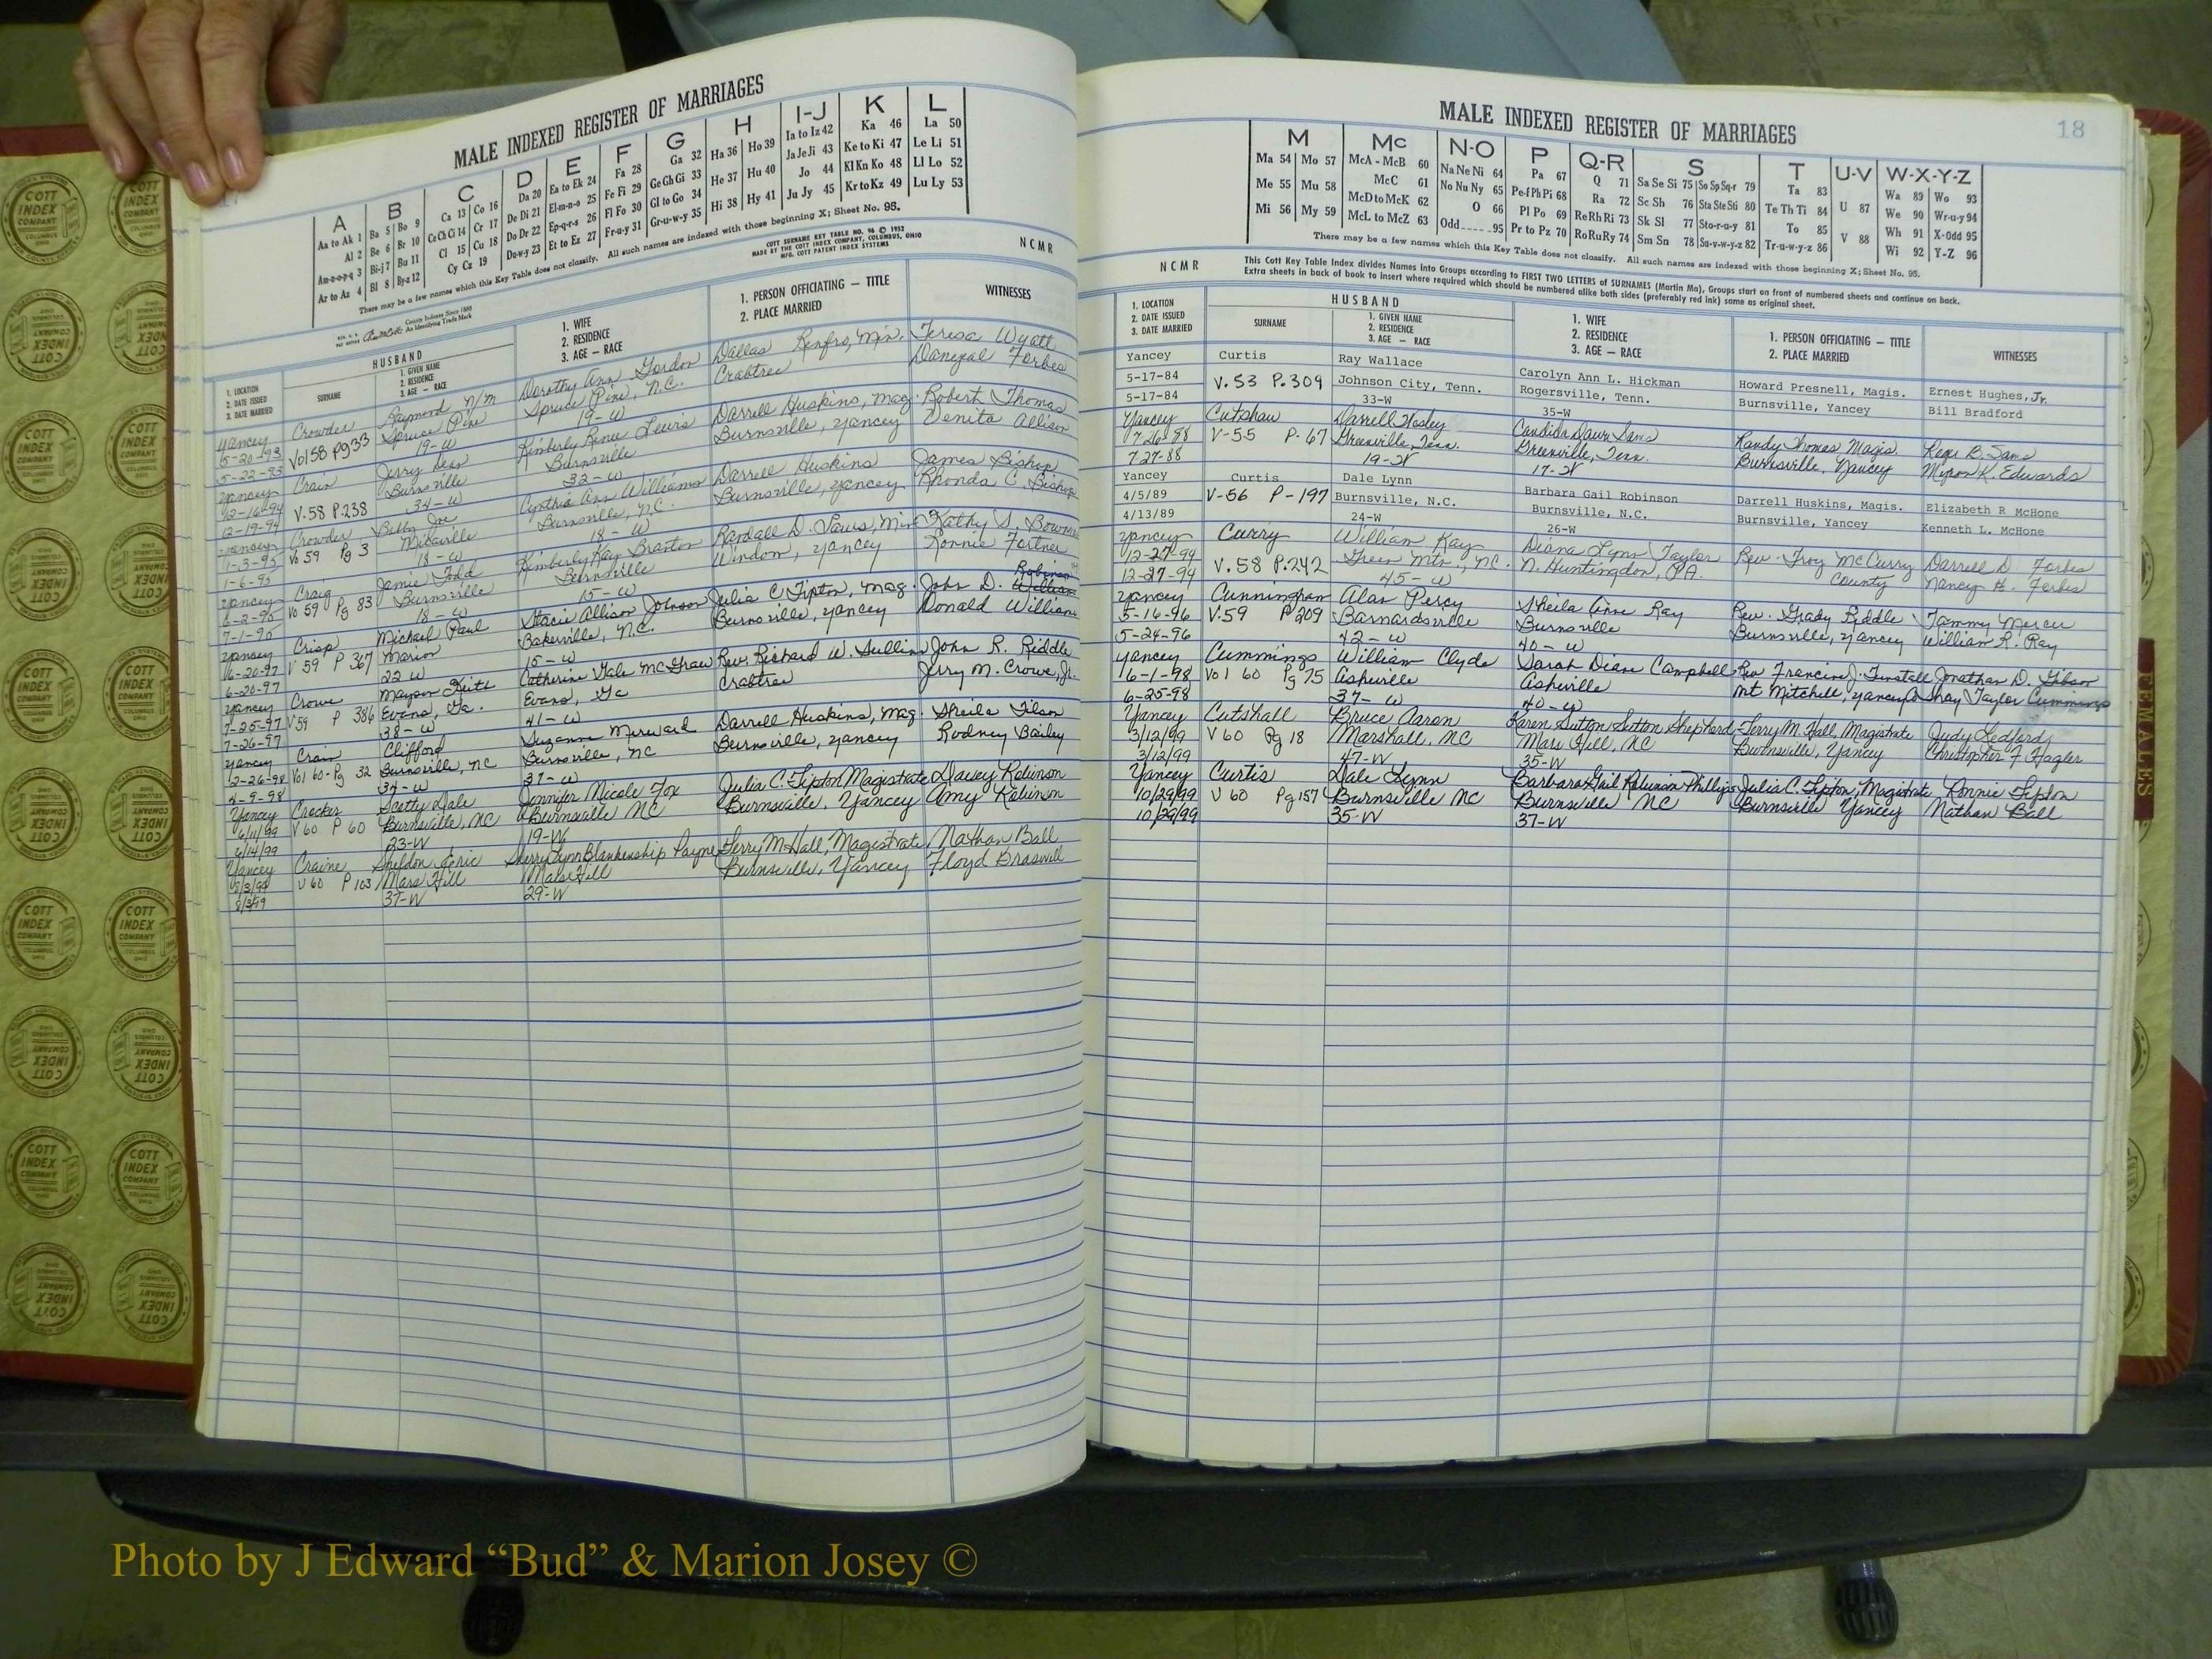 MALE INDEXED REGISTER OF MARRIAGES
A B C D E F G H I-J K L
Aa to Ak 1 Ba 5 Bo 9 Ca 13 Co 16 Da 20 Ea to Ek 24 Fa 28 Ga 32 Ha 36 Ho 39 Ia to Iz 42 Ka 46 La 50
Al 2 Be 6 Br 10 Ce Ch Ci 14 Cr 17 De Di 21 El-m-n-o 25 Fe Fi 29 Ge Gh Gi 33 He 37 Hu 40 Ja Je Ji 43 Ke to Ki 47 Le Li 51
Am-n-o-p-q 3 Bi-j 7 Bu 11 Cl 15 Cu 18 Do Dr 22 Ep-q-r-s 26 Fl Fo 30 Gl to Go 34 Hi 38 Hy 41 Jo 44 Kl Kn Ko 48 Ll Lo 52
Ar to Az 4 Bl 8 By-z 12 Cy Cz 19 Du-w-y 23 Et to Ez 27 Fr-u-y 31 Gr-u-w-y 35 Ju Jy 45 Kr to Kz 49 Lu Ly 53
There may be a few names which this Key Table does not classify. All such names are indexed with those beginning X; Sheet No. 95.
COTT SURNAME KEY TABLE NO. 96 © 1952
MADE BY THE COTT INDEX COMPANY, COLUMBUS, OHIO
MFG. COTT PATENT INDEX SYSTEMS
NCMR
County Indexes Since 1888
An Identifying Trade Mark
1. LOCATION
2. DATE ISSUED
3. DATE MARRIED
HUSBAND
SURNAME
1. GIVEN NAME
2. RESIDENCE
3. AGE — RACE
1. WIFE
2. RESIDENCE
3. AGE — RACE
1. PERSON OFFICIATING — TITLE
2. PLACE MARRIED
WITNESSES
Yancey Crowder Raymond N/M Dorothy Ann Gordon Dallas Renfro, Min. Teresa Wyatt
5-20-93 Vol 58 Pg 33 Spruce Pine Spruce Pine, N.C. Crabtree Danezal Forbes
5-22-93 19-W 19-W
Yancey Crain Jerry Dean Kimberly Renee Lewis Darrell Huskins, Mag. Robert Thomas
12-16-94 V.58 P.238 Burnsville Burnsville Burnsville, Yancey Denita Allison
12-19-94 34-W 32-W
Yancey Crowder Billy Joe Cynthia Ann Williams Darrell Huskins James Bishop
1-3-95 Vo 59 Pg 3 Micaville Burnsville, N.C. Burnsville, Yancey Rhonda C. Bishop
1-6-95 18-W 18-W
Yancey Craig Jamie Todd Kimberly Kay Braxton Randall D. Laws, Min Kathy S. Bowman
6-2-95 Vo 59 Pg 83 Burnsville Burnsville Windom, Yancey Ronnie Fortner
7-1-95 18-W 15-W
Yancey Crisp Michael Paul Stacie Allison Johnson Julia C. Tipton, Mag. John D. Robinson
6-20-97 V 59 P 367 Marion Bakersville, N.C. Burnsville, Yancey Donald Williams
6-20-97 22 W 15-W
Yancey Crowe Mayson Keith Catherine Gale McGraw Rev. Richard W. Sullins John R. Riddle
7-25-97 V59 P 386 Evans, Ga. Evans, Ga Crabtree Jerry M. Crowe, Jr.
7-26-97 38-W 41-W
Yancey Crain Clifford Suzanne Merward Darrell Huskins, Mag. Sheila Tilson
2-26-98 Vol 60-Pg 32 Burnsville, NC Burnsville, NC Burnsville, Yancey Rodney Bailey
4-9-98 34-W 37-W
Yancey Crocker Scotty Dale Jennifer Nicole Fox Julia C. Tipton Magistrate Davey Robinson
6/11/99 V60 P 60 Burnsville, NC Burnsville NC Burnsville, Yancey Amy Robinson
6/14/99 23-W 19-W
Yancey Craine Sheldon Eric Sherry Lynn Blankenship Payne Terry M Hall, Magistrate Nathan Ball
8/3/99 V60 P 103 Mars Hill Mars Hill Burnsville, Yancey Floyd Braswell
8/3/99 37-W 29-W
MALE INDEXED REGISTER OF MARRIAGES
18
M Mc N-O P Q-R S T U-V W-X-Y-Z
Ma 54 Mo 57 McA - McB 60 Na Ne Ni 64 Pa 67 Q 71 Sa Se Si 75 So Sp Sq-r 79 Ta 83 U 87 Wa 89 Wo 93
Me 55 Mu 58 McC 61 No Nu Ny 65 Pe-f Ph Pi 68 Ra 72 Sc Sh 76 Sta Ste Sti 80 Te Th Ti 84 V 88 We 90 Wr-u-y 94
Mi 56 My 59 McD to McK 62 O 66 Pl Po 69 Re Rh Ri 73 Sk Sl 77 Sto-r-u-y 81 To 85 Wh 91 X-Odd 95
McL to McZ 63 Odd 95 Pr to Pz 70 Ro Ru Ry 74 Sm Sn 78 Su-v-w-y-z 82 Tr-u-w-y-z 86 Wi 92 Y-Z 96
There may be a few names which this Key Table does not classify. All such names are indexed with those beginning X; Sheet No. 95.
NCMR
This Cott Key Table Index divides Names into Groups according to FIRST TWO LETTERS of SURNAMES (Martin Ma), Groups start on front of numbered sheets and continue on back.
Extra sheets in back of book to insert where required which should be numbered alike both sides (preferably red ink) same as original sheet.
1. LOCATION
2. DATE ISSUED
3. DATE MARRIED
HUSBAND
SURNAME
1. GIVEN NAME
2. RESIDENCE
3. AGE — RACE
1. WIFE
2. RESIDENCE
3. AGE — RACE
1. PERSON OFFICIATING — TITLE
2. PLACE MARRIED
WITNESSES
Yancey Curtis Ray Wallace Carolyn Ann L. Hickman Howard Presnell, Magis. Ernest Hughes, Jr.
5-17-84 V.53 P.309 Johnson City, Tenn. Rogersville, Tenn. Burnsville, Yancey Bill Bradford
5-17-84 33-W 35-W
Yancey Cutshaw Darrell Wesley Candida Dawn Sams Randy Thomas Magis. Roger B. Sams
7-26-88 V-55 P. 67 Greenville, Tenn. Greenville, Tenn. Burnsville, Yancey Myron K. Edwards
7-27-88 19-W 17-W
Yancey Curtis Dale Lynn Barbara Gail Robinson Darrell Huskins, Magis. Elizabeth R McHone
4/5/89 V-56 P-197 Burnsville, N.C. Burnsville, N.C. Burnsville, Yancey Kenneth L. McHone
4/13/89 24-W 26-W
Yancey Curry William Kay Diana Lynn Taylor Rev. Troy McCurry Darrell D. Forbes
12-27-94 V.58 P.242 Green Mtn., NC. N. Huntingdon, PA. County Nancy H. Forbes
12-27-94 45-W
Yancey Cunningham Alan Percy Sheila Anne Ray Rev. Grady Riddle Tammy Mercer
5-16-96 V.59 P 209 Barnardsville Burnsville Burnsville, Yancey William R. Ray
5-24-96 42-W 40-W
Yancey Cummings William Clyde Sarah Diane Campbell Rev Francis J. Tunstall Jonathan D. Gibson
6-1-98 Vol 60 Pg 75 Asheville Asheville Mt Mitchell, Yancey Co Shay Taylor Cummings
6-25-98 37-W 40-W
Yancey Cutshall Bruce Aaron Karen Sutton Sutton Shephard Terry M. Hall, Magistrate Judy Ledford
3/12/99 V60 Pg 18 Marshall, NC Mars Hill, NC Burnsville, Yancey Christopher F Hagler
3/12/99 47-W 35-W
Yancey Curtis Dale Lynn Barbara Gail Robinson Phillips Julia C. Tipton, Magistrate Ronnie Tipton
10/29/99 V 60 Pg 157 Burnsville NC Burnsville NC Burnsville Yancey Nathan Ball
10/29/99 35-W 37-W
FEMALES
COTT
INDEX
COMPANY
COLUMBUS
OHIO
Photo by J Edward “Bud” & Marion Josey ©